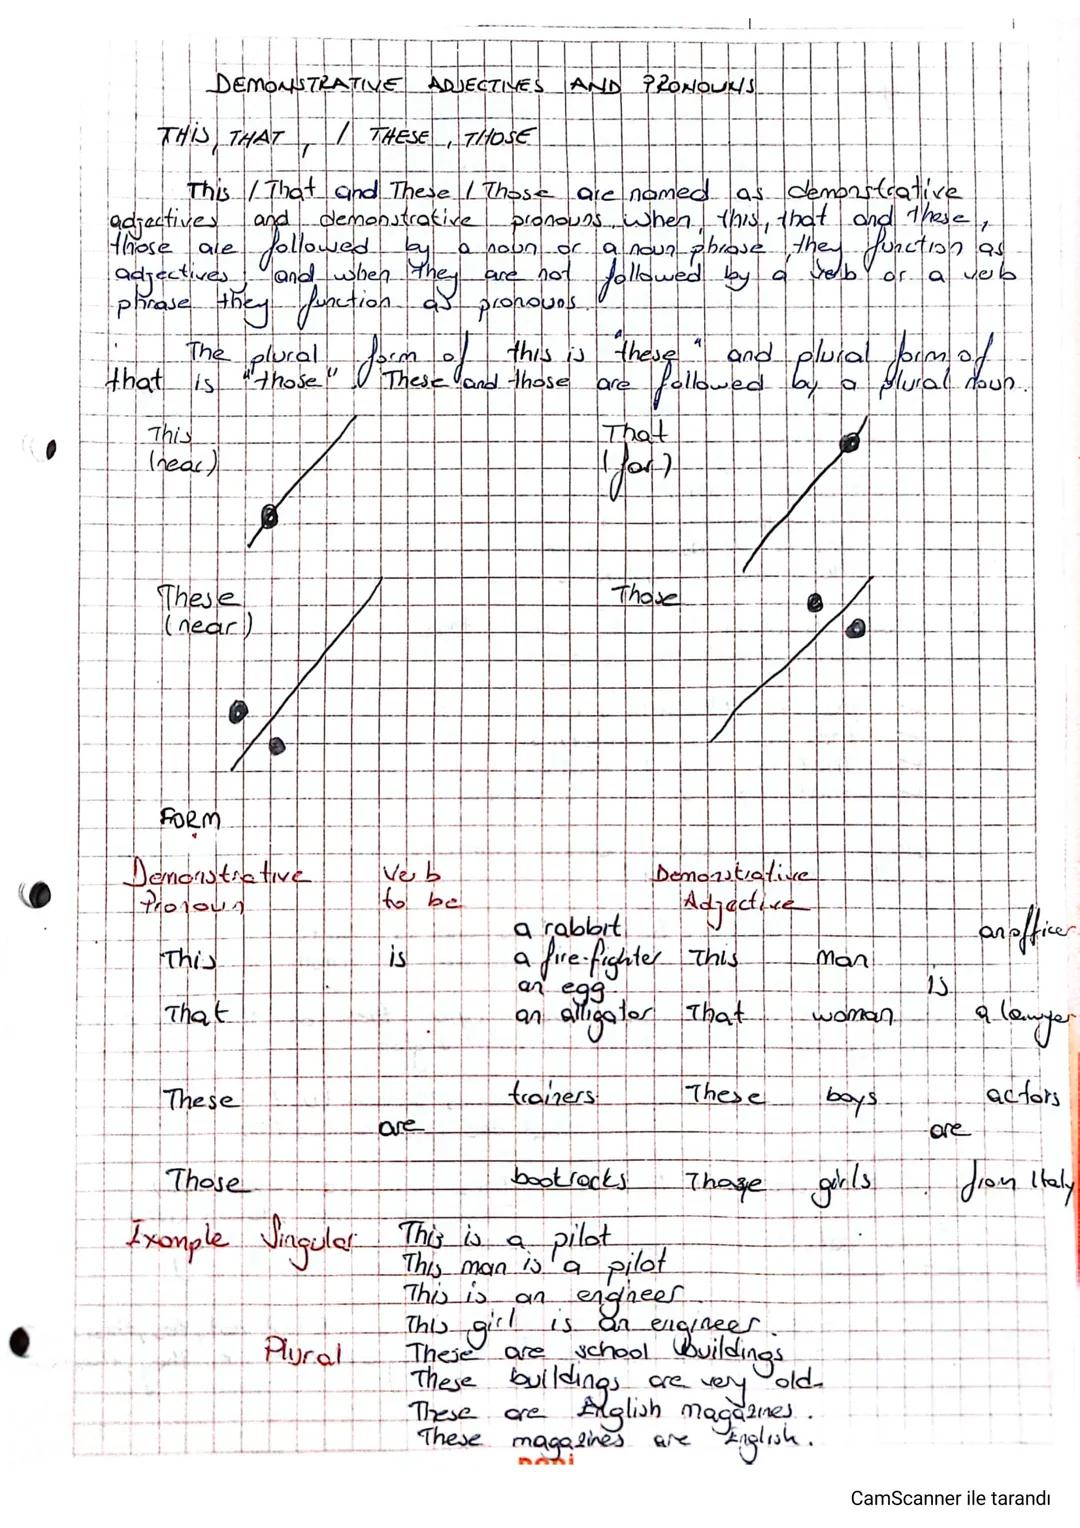 DEMONSTRATIVE ADJECTIVES AND PRONOUNS
THIS, THAT, / THESE, THOSE
This / That and These / Those are named as demonstrative
adjectives and demonstrative pronouns. when, this, that and these,
those are followed by a noun or a noun phrase, they function as
adjectives, and when they are not followed by a verb or a verb
phrase they function as pronouns.
The plural form of this is "these" and plural form of
that is "those". These and those are followed by a plural noun.
This That
(near) (far)
These Those
(near)
FORM
Demonstrative Verb Demonstrative
Pronoun to be Adjective
a rabbit an officer
This is a fire-fighter This man
an egg is
That an alligator That woman a lawyer
These trainers These boys actors
are are
Those bootracks Those girls from Italy
Example Singular This is a pilot
This man is a pilot
This is an engineer.
This girl is an engineer.
Plural These are school buildings
These buildings are very old.
These are English magazines.
These magazines are English.
CamScanner ile tarandı